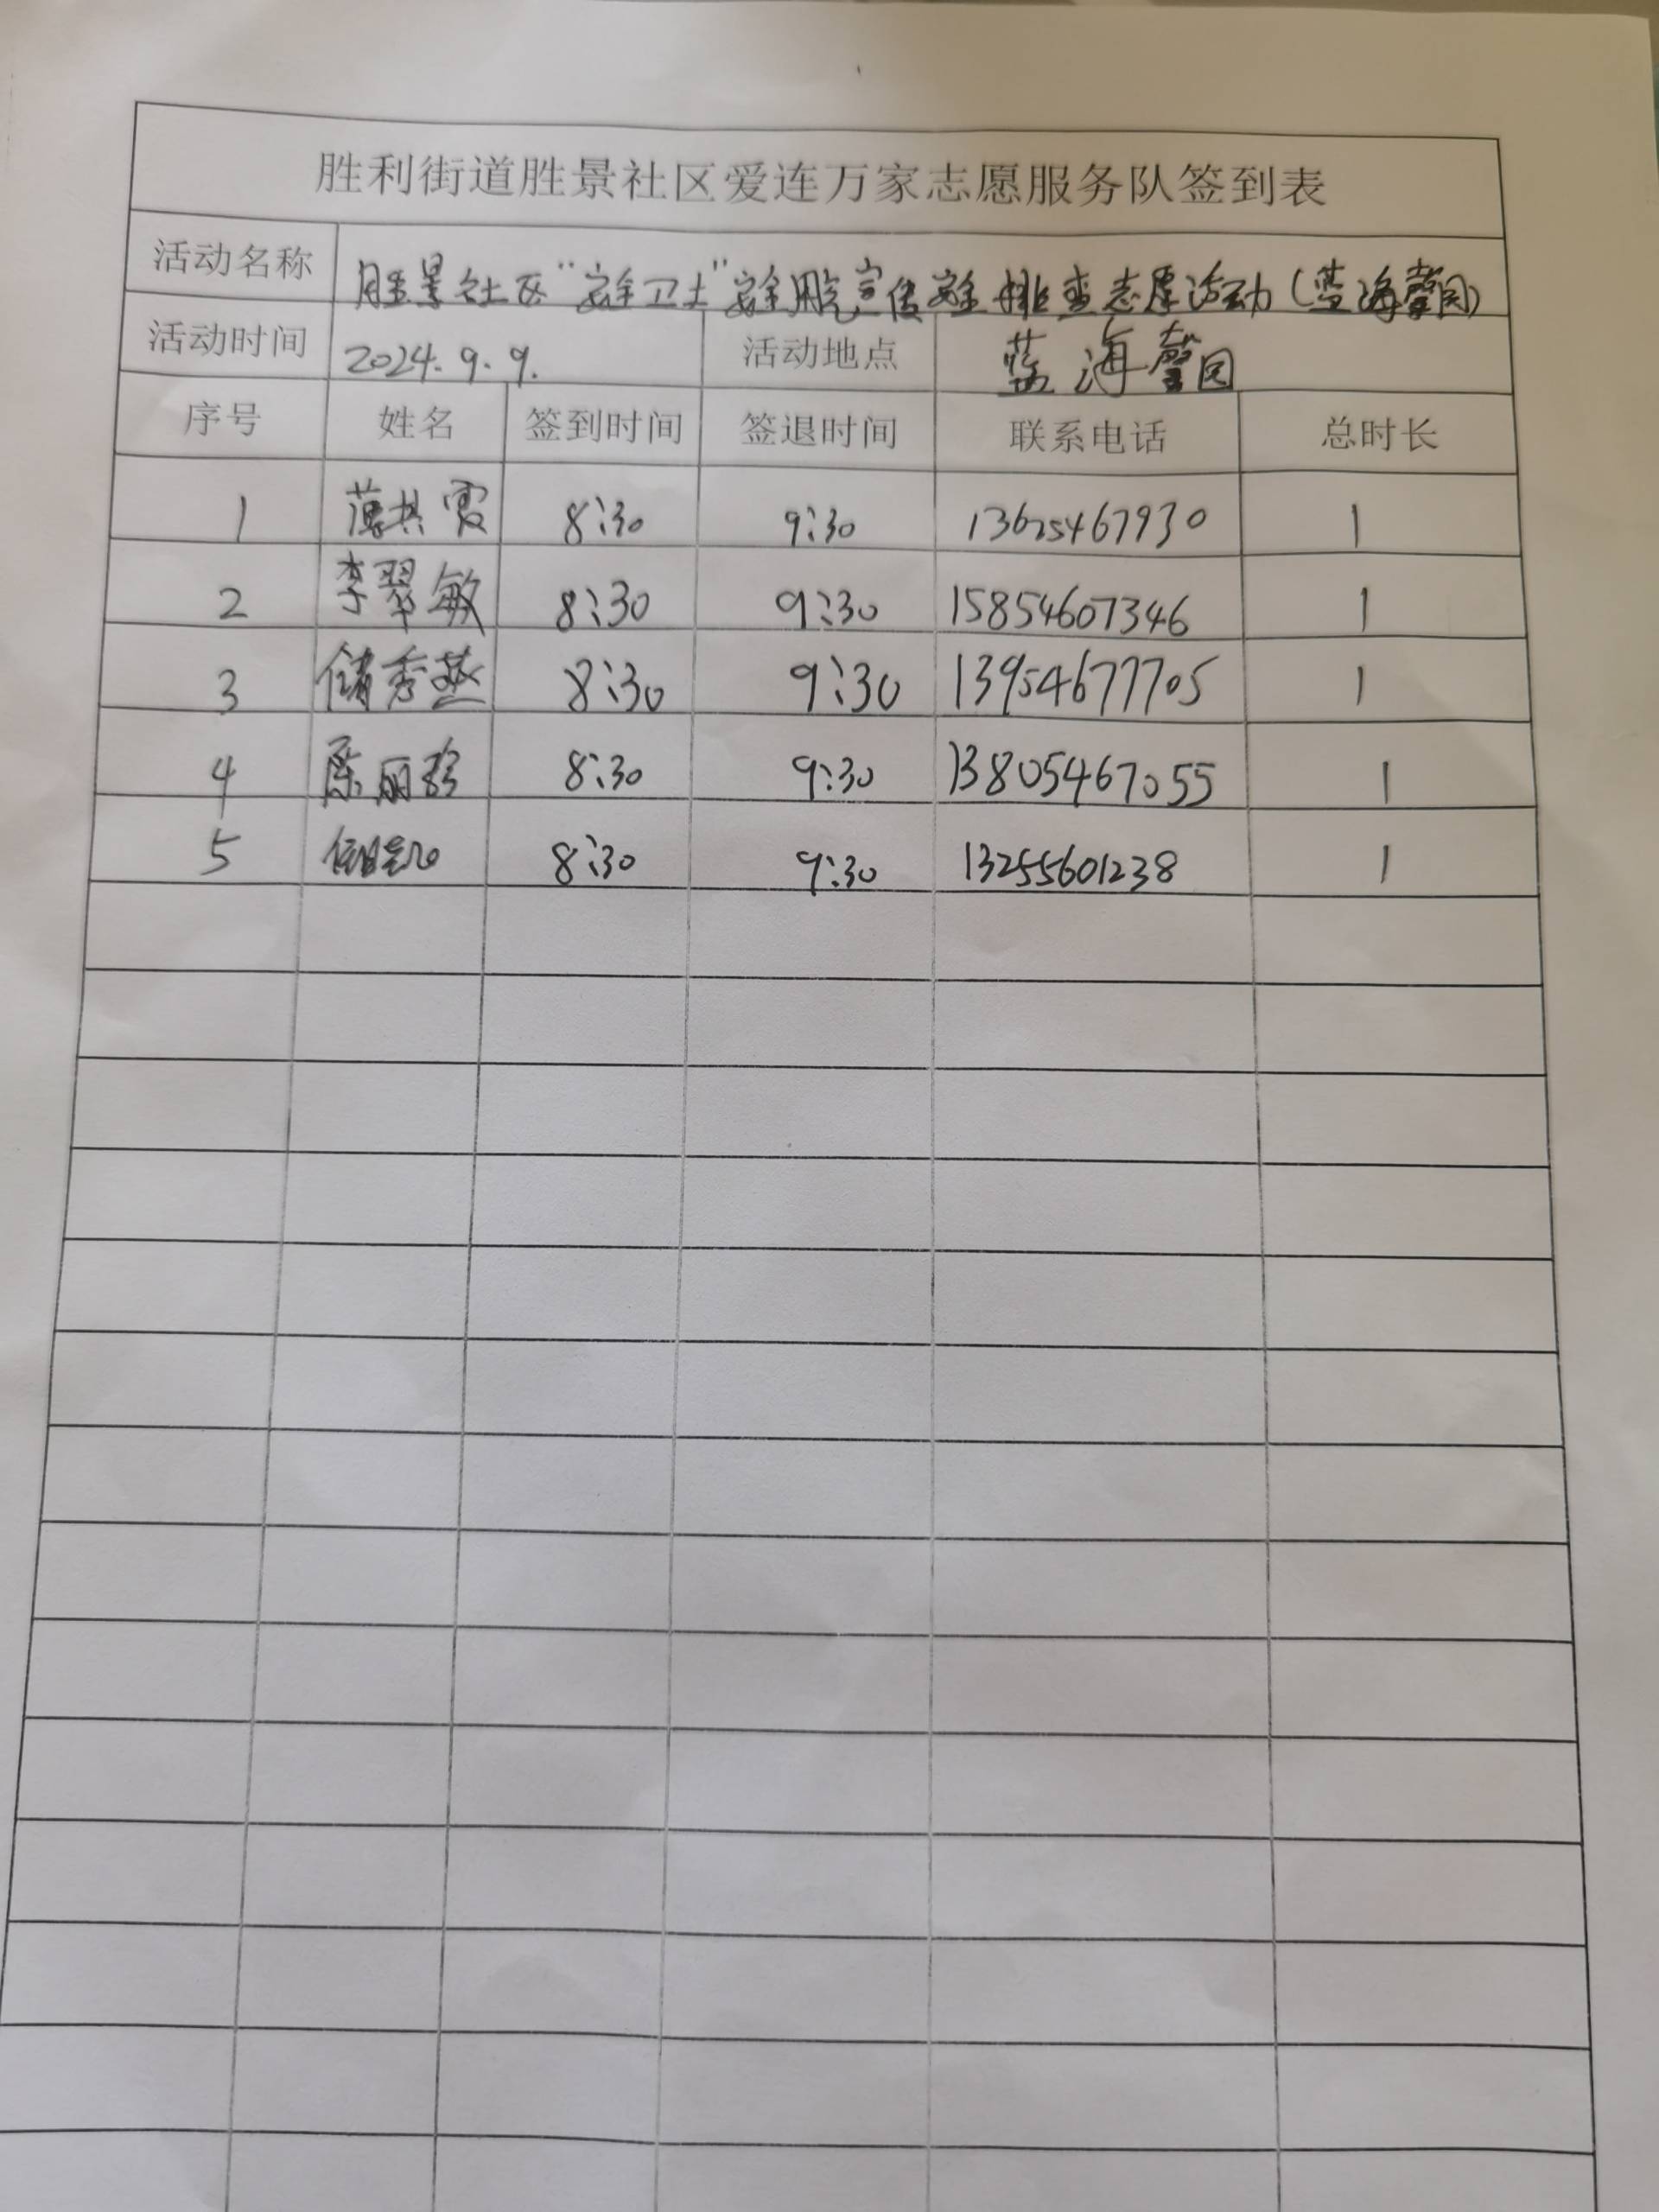 胜利街道胜景社区爱连万家志愿服务队签到表
活动名称 胜景社区“安全卫士”安全用气宣传安全排查志愿活动(蓝海馨园)
活动时间 2024.9.9. 活动地点 蓝海馨园
序号 姓名 签到时间 签退时间 联系电话 总时长
1 薄共霞 8:30 9:30 13625467930 1
2 李翠敏 8:30 9:30 15854607346 1
3 储秀燕 8:30 9:30 13954677705 1
4 陈丽珍 8:30 9:30 13805467055 1
5 8:30 9:30 13255601238 1